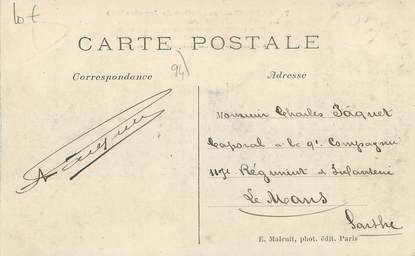 CARTE POSTALE
Correspondance
Adresse
94
Monsieur Charles Jaquet
Caporal à la 9e Compagnie
117e Régiment d'Infanterie
Le Mans
Sarthe
E. Malcuit, phot. édit. Paris